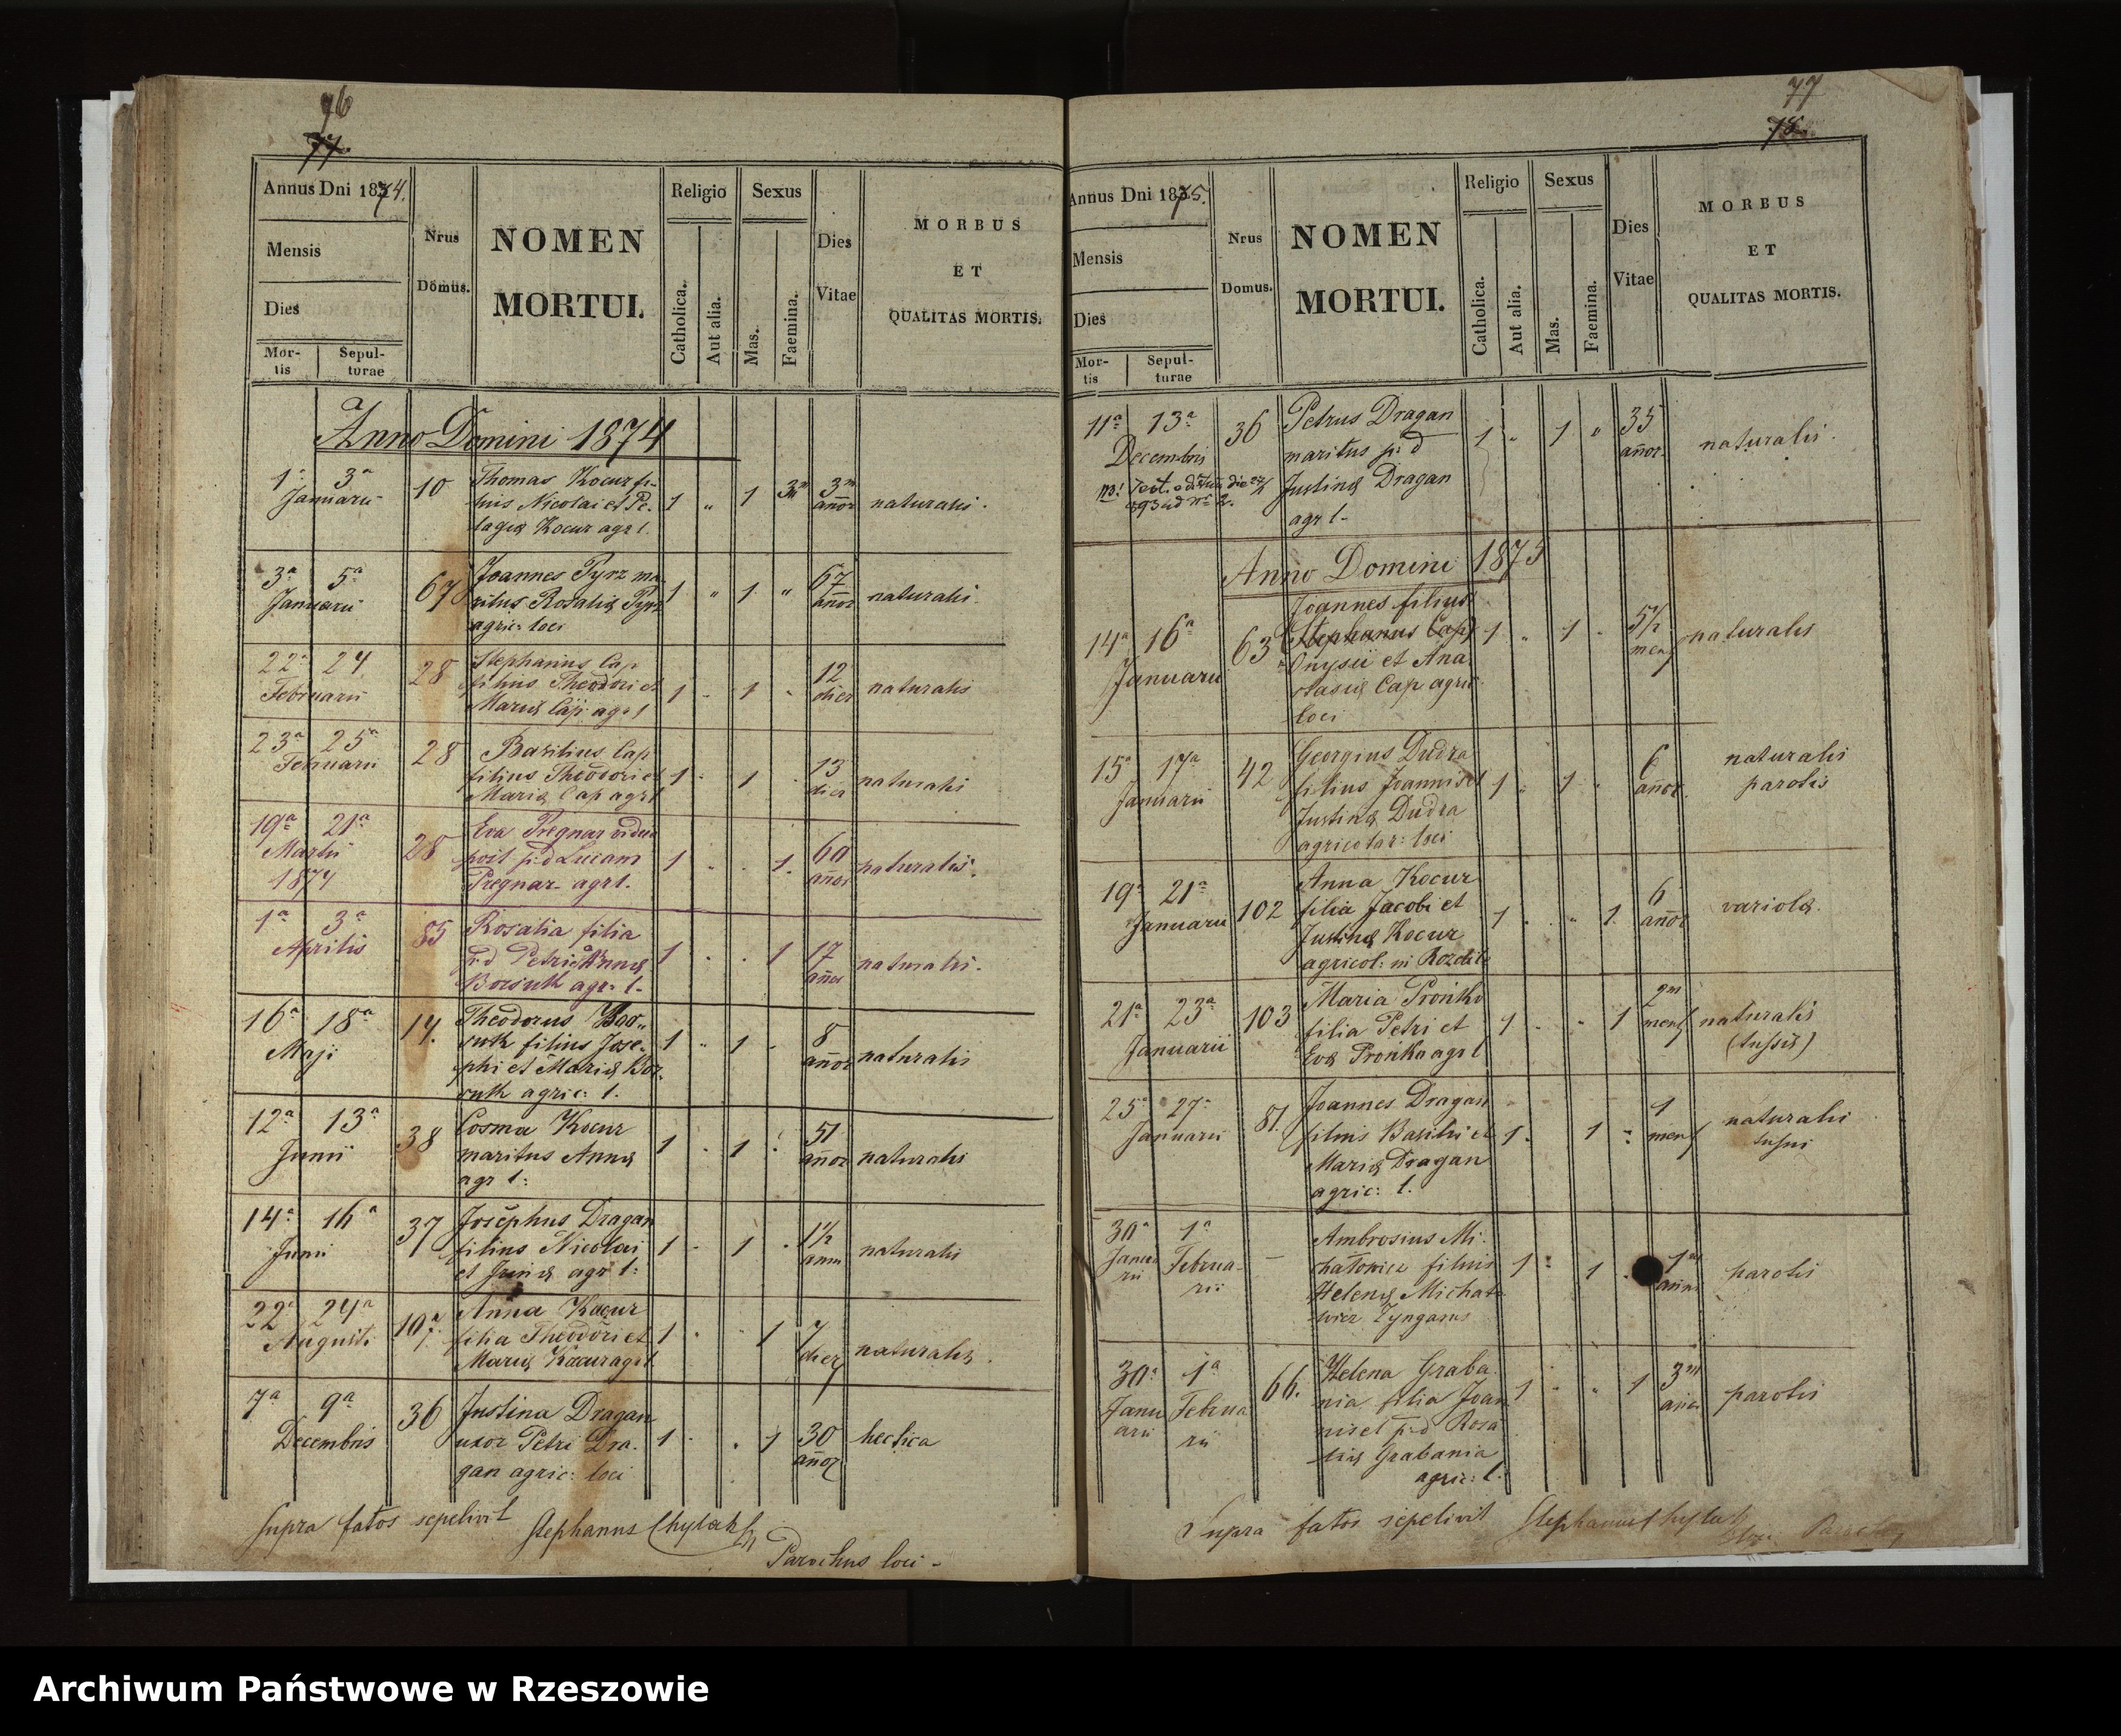 76
77.
Annus Dni 1874.
Mensis
Dies
Mor-
tis
Sepul-
turae
Nrus
Domus.
NOMEN
MORTUI.
Religio
Catholica.
Aut alia.
Sexus
Mas.
Faemina.
Dies
Vitae
MORBUS
ET
QUALITAS MORTIS.
Anno Domini 1874
1a 3a
Januarii
10
Thomas Kocur fi-
lius Nicolai et Pe-
lagiæ Kocur agr l.
1 " 1
3
annor
naturalis.
3a 5a
Januarii
67
Joannes Pyrz ma-
ritus Rosaliæ Pyrz
agric: loci
1 " 1 "
67
annor
naturalis.
22a 24
Februarii
28
Stephanus Cap
filius Theodori et
Mariæ Cap agr l
1 - 1 -
12
dier
naturalis
23a 25a
Februarii
28
Basilius Cap
filius Theodori et
Mariæ Cap agr l
1 - 1 -
13
dier
naturalis
19a 21a
Martii
1874
28
Eva Pregnar vidua
post p:d Lucam
Pregnar- agr l.
1 . . 1.
60
annor
naturalis.
1a 3a
Aprilis
85
Rosalia filia
p:d Petri et Annæ
Borsuk agr. l.
1 . . 1
17
annor
naturalis.
16a 18a
Maji
14.
Theodorus Bor-
suk filius Jose-
phi et Mariæ Bor-
suk agric: l.
1 " 1 -
8
annor
naturalis
12a 13a
Junii
38
Cosma Kocur
maritus Annæ
agr l:
1 . 1 .
51
annor
naturalis
14a 16a
Junii
37
Josephus Dragan
filius Nicolai
et agr l:
1 - 1 .
1½
anni
naturalis
22a 24a
Augusti
107.
Anna Kocur
filia Theodori et
Mariæ Kocur agr l
1 . . 1
7
dier
naturalis.
7a 9a
Decembris
36
Justina Dragan
uxor Petri Dra-
gan agric: loci
1 . . 1
30
annor
hectica
Supra fatos sepelivit Stephanus Chylak
Parochus loci -
77
78.
Annus Dni 1875.
Mensis
Dies
Mor-
tis
Sepul-
turae
Nrus
Domus.
NOMEN
MORTUI.
Religio
Catholica.
Aut alia.
Sexus
Mas.
Faemina.
Dies
Vitae
MORBUS
ET
QUALITAS MORTIS.
11a 13a
Decembris
36
Petrus Dragan
maritus p:d
Justinæ Dragan
agr l-
1 " 1 "
35
annor
naturalis.
Anno Domini 1875
14a 16a
Januarii
63
Joannes filius
Stephanus Cap
Onysii et Ana-
stasiæ Cap agric
loci
1 " 1 -
5½
mens
naturalis
15a 17a
Januarii
42
Georgius Dudra
filius Joannis et
Justinæ Dudra
agricolar: loci
1 " 1 "
6
annor.
naturalis
parotis
19a 21a
Januarii
102
Anna Kocur
filia Jacobi et
Justinæ Kocur
agricol: in
1 . " 1.
6
annor
variola.
21a 23a
Januarii
103
Maria Prońko
filia Petri et
Evæ Prońko agr l
1 . . 1
2
mens
naturalis
(tussis)
25a 27a
Januarii
81.
Joannes Dragan
filius Basilii et
Mariæ Dragan
agric: l.
1. 1 -
1
mens
naturalis
tussis
30a 1a
Janua-
rii
Februa-
rii
-
Ambrosius Mi-
chałowicz filius
Helenæ Michało-
wicz Zyngarus
1 - 1 .
1
anni
parotis
30a 1a
Janu
arii
Februa
rii
66.
Helena Graba
nia filia Joan
nis et p:d Rosa
liæ Grabania
agric: l.
1 " " 1
3
annor
parotis
Supra fatos sepelivit Stephanus Chylak
Archiwum Państwowe w Rzeszowie